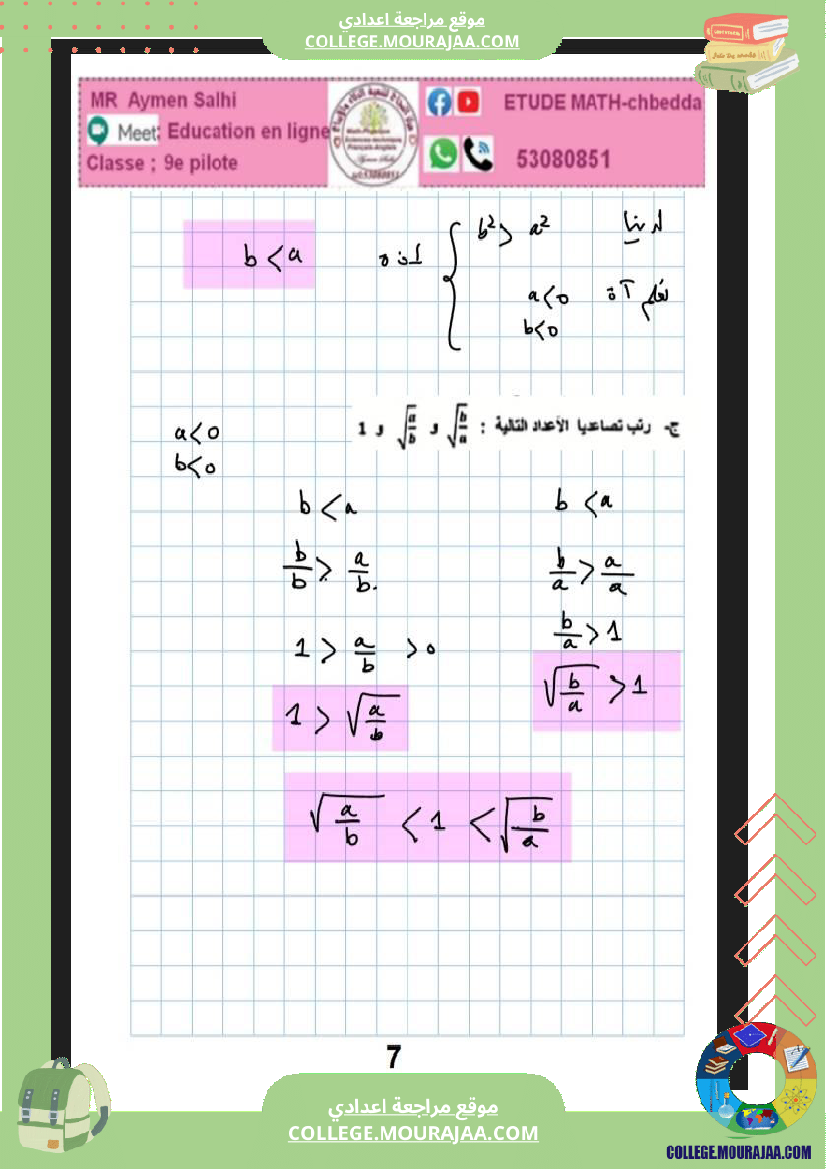 موقع مراجعة اعدادي
COLLEGE.MOURAJAA.COM
MR Aymen Salhi
Meet: Education en ligne
Classe ; 9e pilote
ETUDE MATH-chbedda
53080851
لدينا b² > a²
نعلم أن a < 0
b < 0
اذن b < a
ج- رتب تصاعديا الأعداد التالية : √(b/a) و √(a/b) و 1
a < 0
b < 0
b < a
b/a > a/a
b/a > 1
√(b/a) > 1
b < a
b/b > a/b
1 > a/b > 0
1 > √(a/b)
√(a/b) < 1 < √(b/a)
7
موقع مراجعة اعدادي
COLLEGE.MOURAJAA.COM
COLLEGE.MOURAJAA.COM